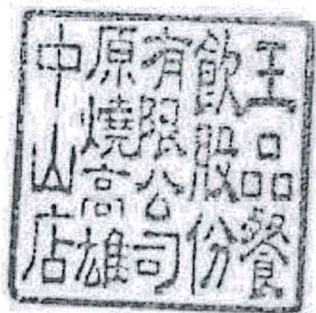 王品餐
飲股份
有限公司
原燒高雄
中山店